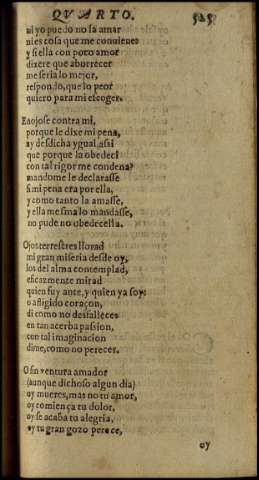 QVARTO. 525
ni yo puedo no la amar
ni es cosa que me conuienes
y si ella con poco amor
dixere que aburrecer
me seria lo mejor,
respondo, que lo peor
quiero para mi escoger.
Enojose contra mi,
porque le dixe mi pena,
ay desdicha ygual assi
que porque la obedeci
con tal rigor me condena?
mandome le declarasse
si mi pena era por ella,
y como tanto la amasse,
y ella mesma lo mandasse,
no pude no obedecella.
Ojos terrestres llorad
mi gran miseria desde oy,
los del alma contemplad,
eficazmente mirad
quien fuy ante, y quien ya soy:
o afligido coraçon,
di como no desfalleces
en tan acerba passion,
con tal imaginacion
dime, como no pereces.
O sin ventura amador
(aunque dichoso algun dia)
oy mueres, mas no tu amor,
oy comiença tu dolor,
oy se acaba tu alegria,
oy tu gran gozo perece,
oy